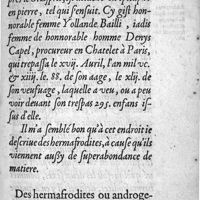 en pierre, tel qui s'ensuit. Cy gist hon-
norable femme Yollande Bailli, iadis
femme de honnorable homme Denys
Capel, procureur en Chatelet à Paris,
qui trepassa le xvij. Auril, l'an mil vc.
& xiiij. le 88. de son aage, le xlij. de
son veufuage, laquelle a veu, ou a peu
voir deuant son trespas 295. enfans is-
sus d'elle.
Il m'a semblé bon qu'à cet endroit ie
descriue des hermafrodites, à cause qu'ils
viennent aussy de superabondance de
matiere.
Des hermafrodites ou androge-